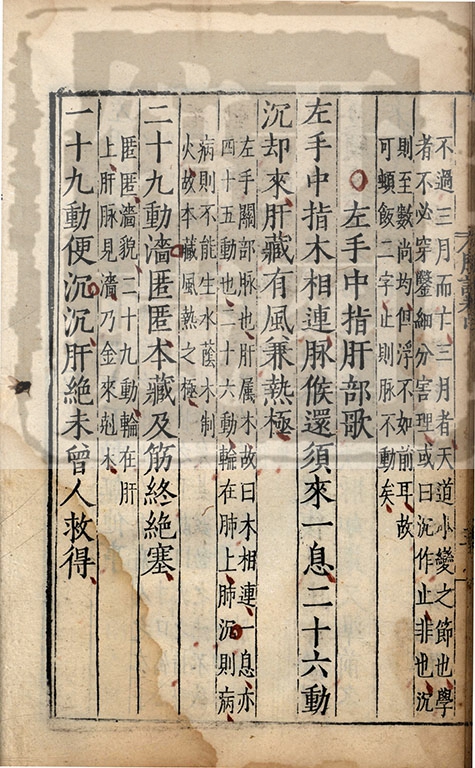 不過三月而亡三月者天道小變之節也學
者不必穿鑿細分害理或曰沉作止非也沉
則至數尚均但浮不如前耳故
可頓飯二字止則脉不動矣
左手中指肝部歌
左手中指木相連脉候還須來一息二十六動
沉却來肝藏有風兼熱極
左手關部脉也肝属木故曰木相連一息亦
四十五動也二十六動輪在肺上肺沉則病
病則不能生水蔭木制
火故本藏風熱之極
二十九動濇匿匿本藏及筋終絶塞
匿匿濇貌二十九動輪在肝
上肝脉見濇乃金來剋木
一十九動便沉沉肝絶未曾人救得